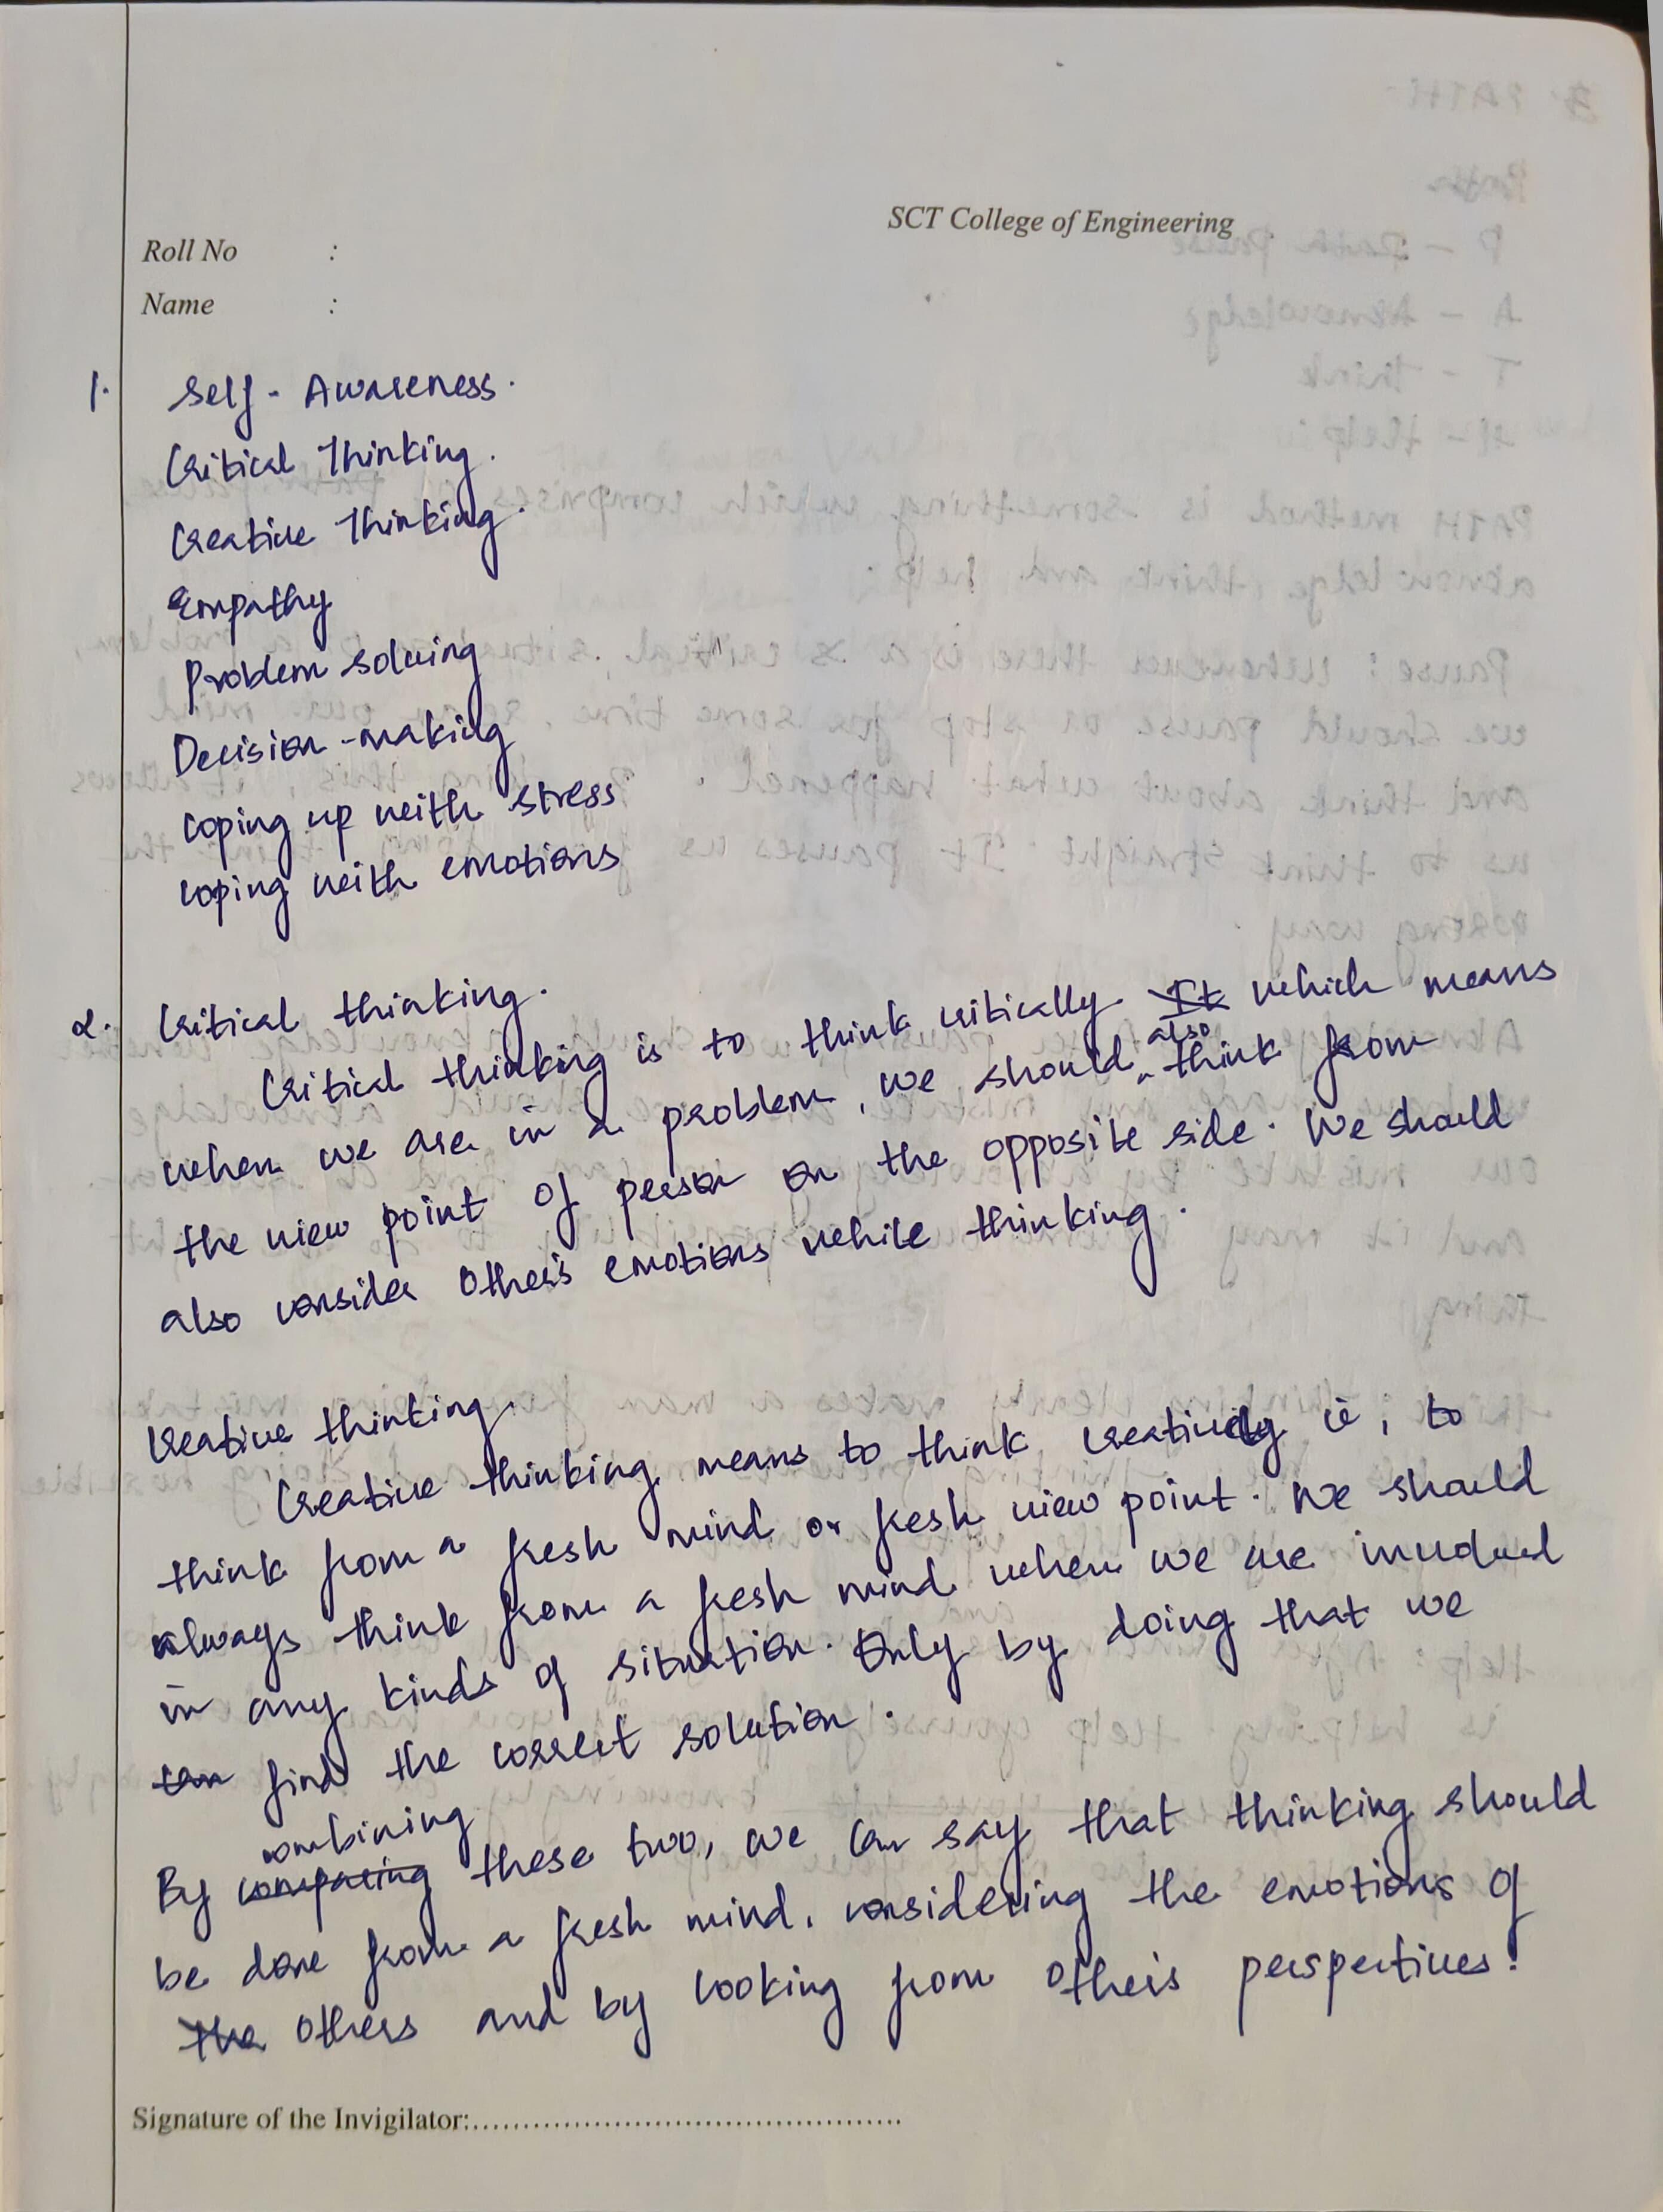 SCT College of Engineering
Roll No :
Name :
1. Self - Awareness.
Critical Thinking.
Creative Thinking.
Empathy
Problem solving
Decision-making
coping up with stress
coping with emotions
2. Critical thinking.
Critical thinking is to think critically. It which means
when we are in a problem, we should also think from
the view point of person on the opposite side. We should
also consider other's emotions while thinking.
Creative thinking.
Creative thinking means to think creatively ie, to
think from a fresh mind or fresh view point. We should
always think from a fresh mind when we are involved
in any kinds of situation. Only by doing that we
can find the correct solution.
By comparing combining these two, we can say that thinking should
be done from a fresh mind, considering the emotions of
the others and by looking from other's perspectives.
Signature of the Invigilator:..........................................